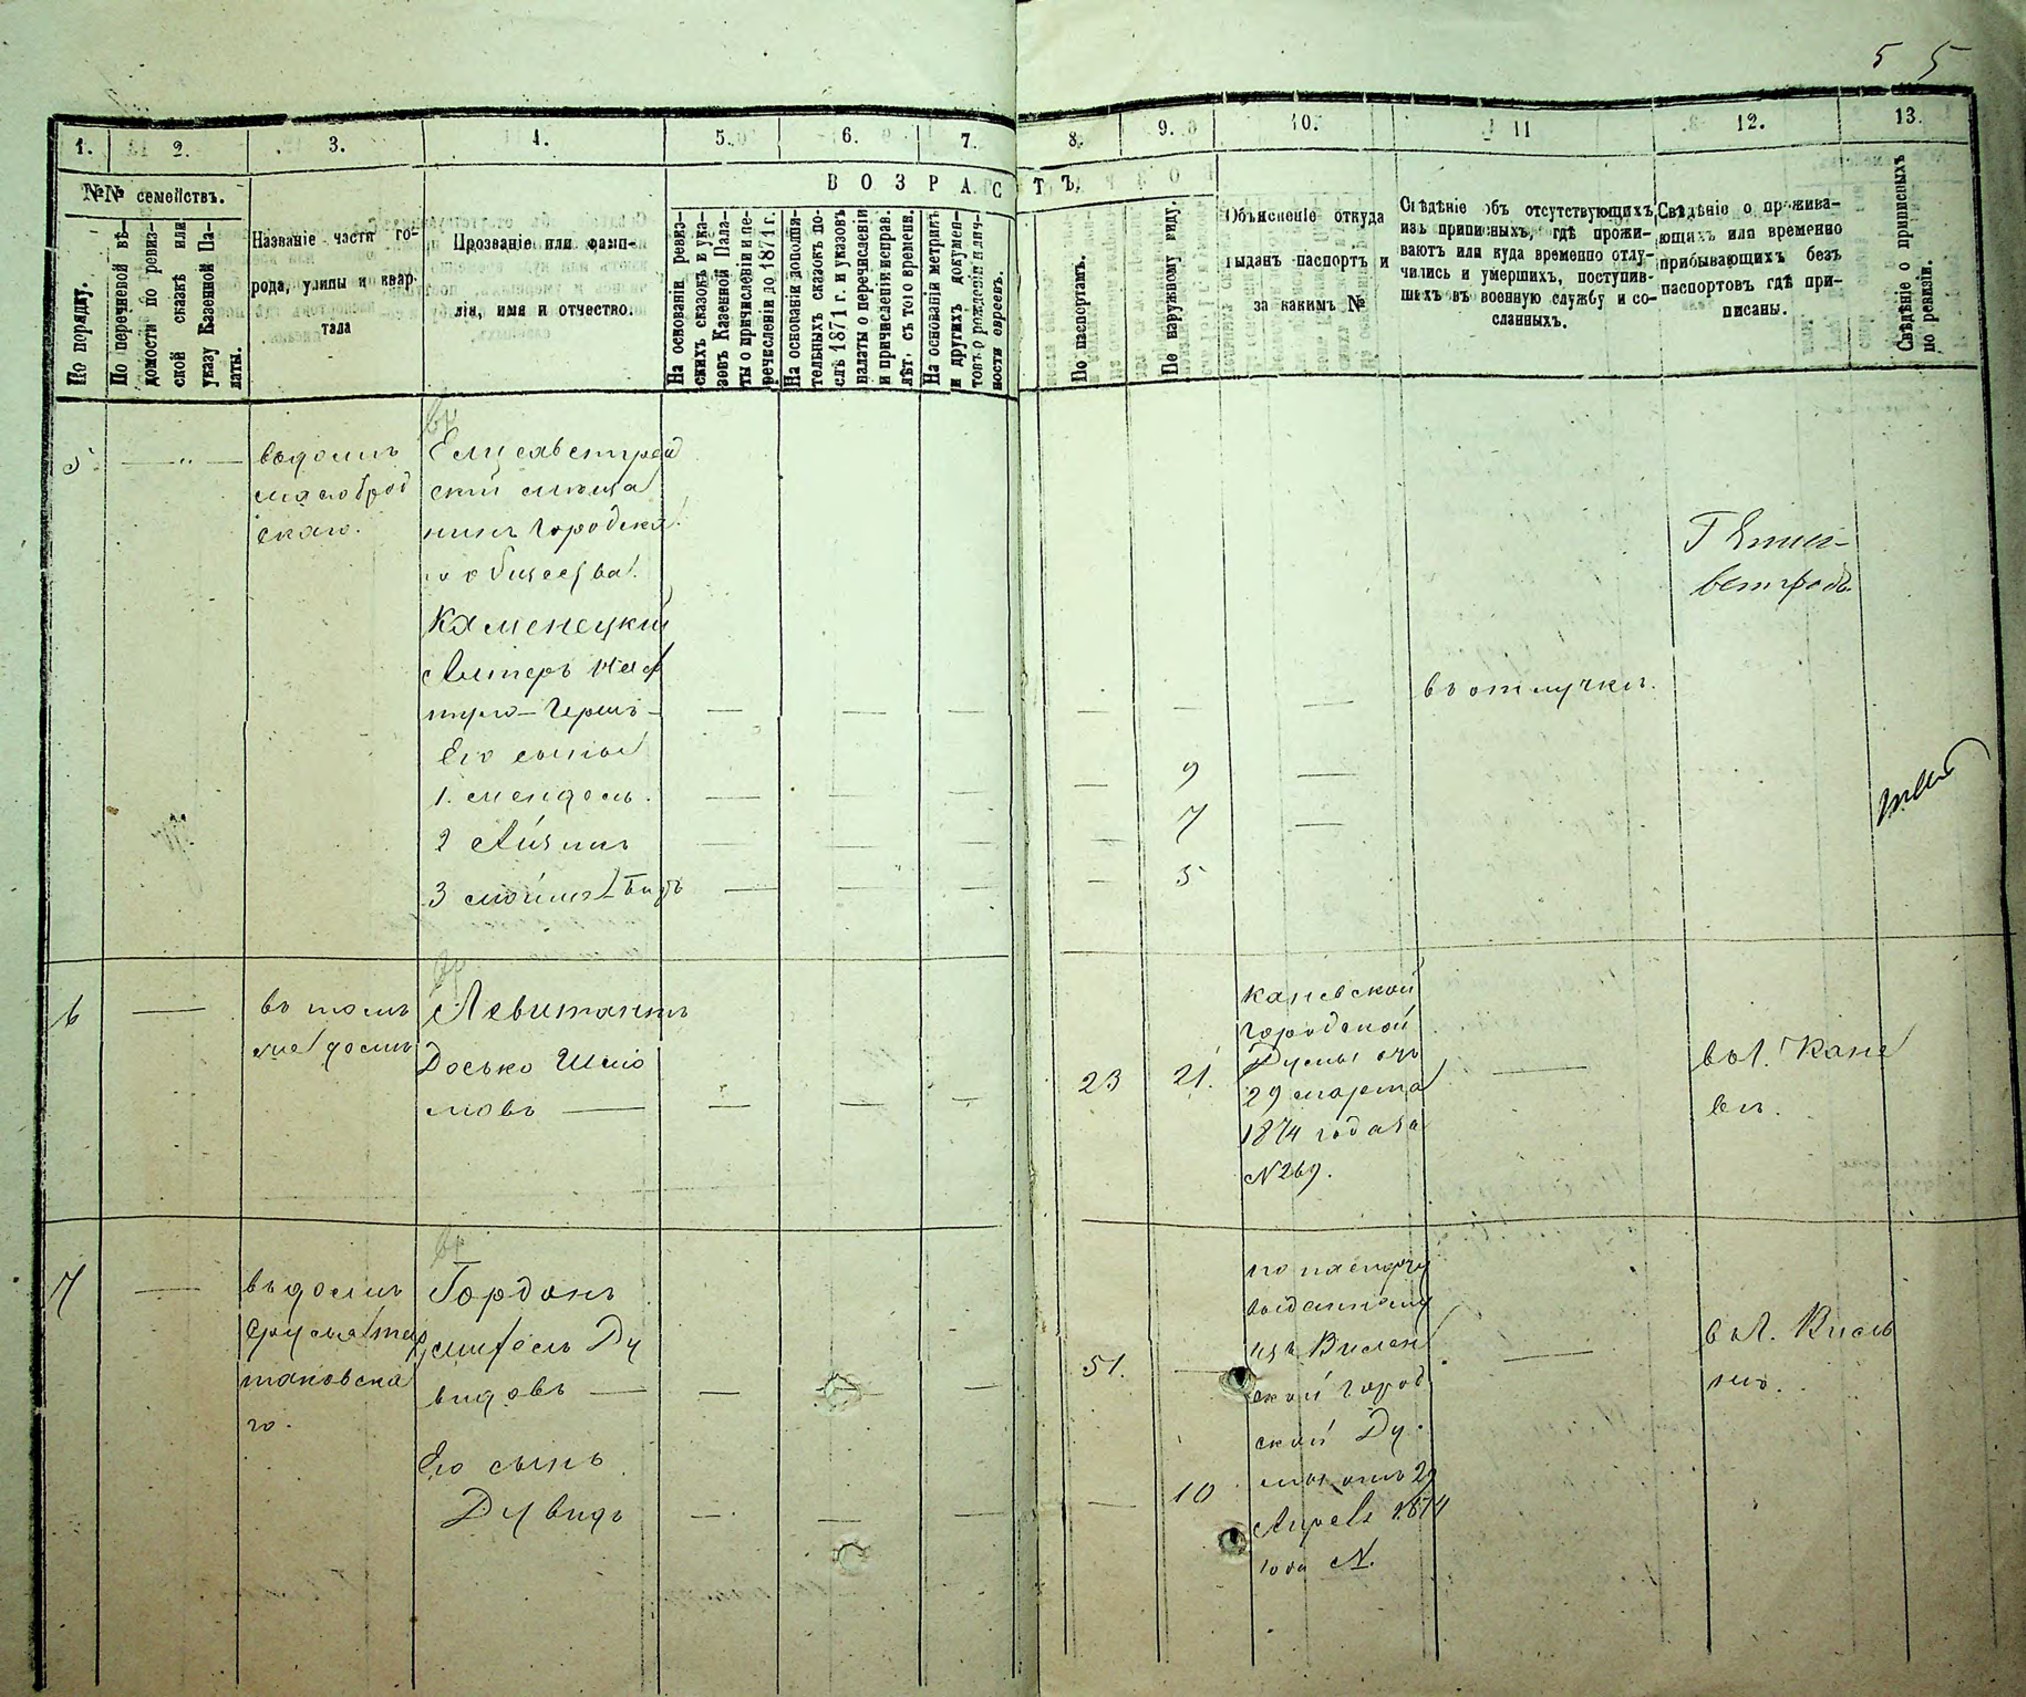 5 5
1.
2.
3.
4.
5.
6.
7.
8.
9.
10.
11
12.
13.
№№ семействъ.
В О З Р А С Т Ъ.
По порядку.
По перечневой вѣ-
домости по ревиз-
ской сказкѣ или
указу Казенной Па-
латы.
Названіе части го-
рода, улицы и квар-
тала
Прозваніе или фами-
лія, имя и отчество.
На основаніи ревиз-
скихъ сказокъ и ука-
зовъ Казенной Пала-
ты о причисленіи и пе-
речисленіи до 1871 г.
На основаніи дополни-
тельныхъ сказокъ по-
слѣ 1871 г. и указовъ
палаты о перечисленіи
и причисленіи исправ.
лѣт. съ того времени.
На основаніи метрикъ
и другихъ докумен-
товъ о рожденіи и лич-
ности евреевъ.
По паспортамъ.
По наружному виду.
Объясненіе откуда
выданъ паспортъ и
за какимъ №
Свѣдѣніе объ отсутствующихъ
изъ приписныхъ, гдѣ прожи-
ваютъ или куда временно отлу-
чились и умершихъ, поступив-
шихъ въ военную службу и со-
сланныхъ.
Свѣдѣніе о прожива-
ющихъ или временно
прибывающихъ безъ
паспортовъ гдѣ при-
писаны.
Свѣдѣніе о приписныхъ
по ревизіи.
5 — " — въ домѣ
ского.
Елисаветград
скій мѣща
нинъ Городска
го общества
Каменецкій
Алтеръ Наф
тула-Гершъ —
Его сыновья
1. Мендель.
2 Айзикъ
3 Мойше
въ отлучкѣ.
Г Елиса-
ветградъ
9
7
5
6 — въ томъ
же домѣ
Левитантъ
Доська Шлио
мовъ —
23 21.
Каневской
городской
Думы отъ
29 марта
1874 года за
№ 269.
въ г. Кане
вѣ.
7 — въ домѣ
го.
Гордонъ
Ду
видовъ —
Его сынъ
Дувидъ
51.
10
по паспорту
выданному
изъ Вилен
ской город
ской Ду
мы отъ 29
1874
года №.
въ г. Виль
нѣ.